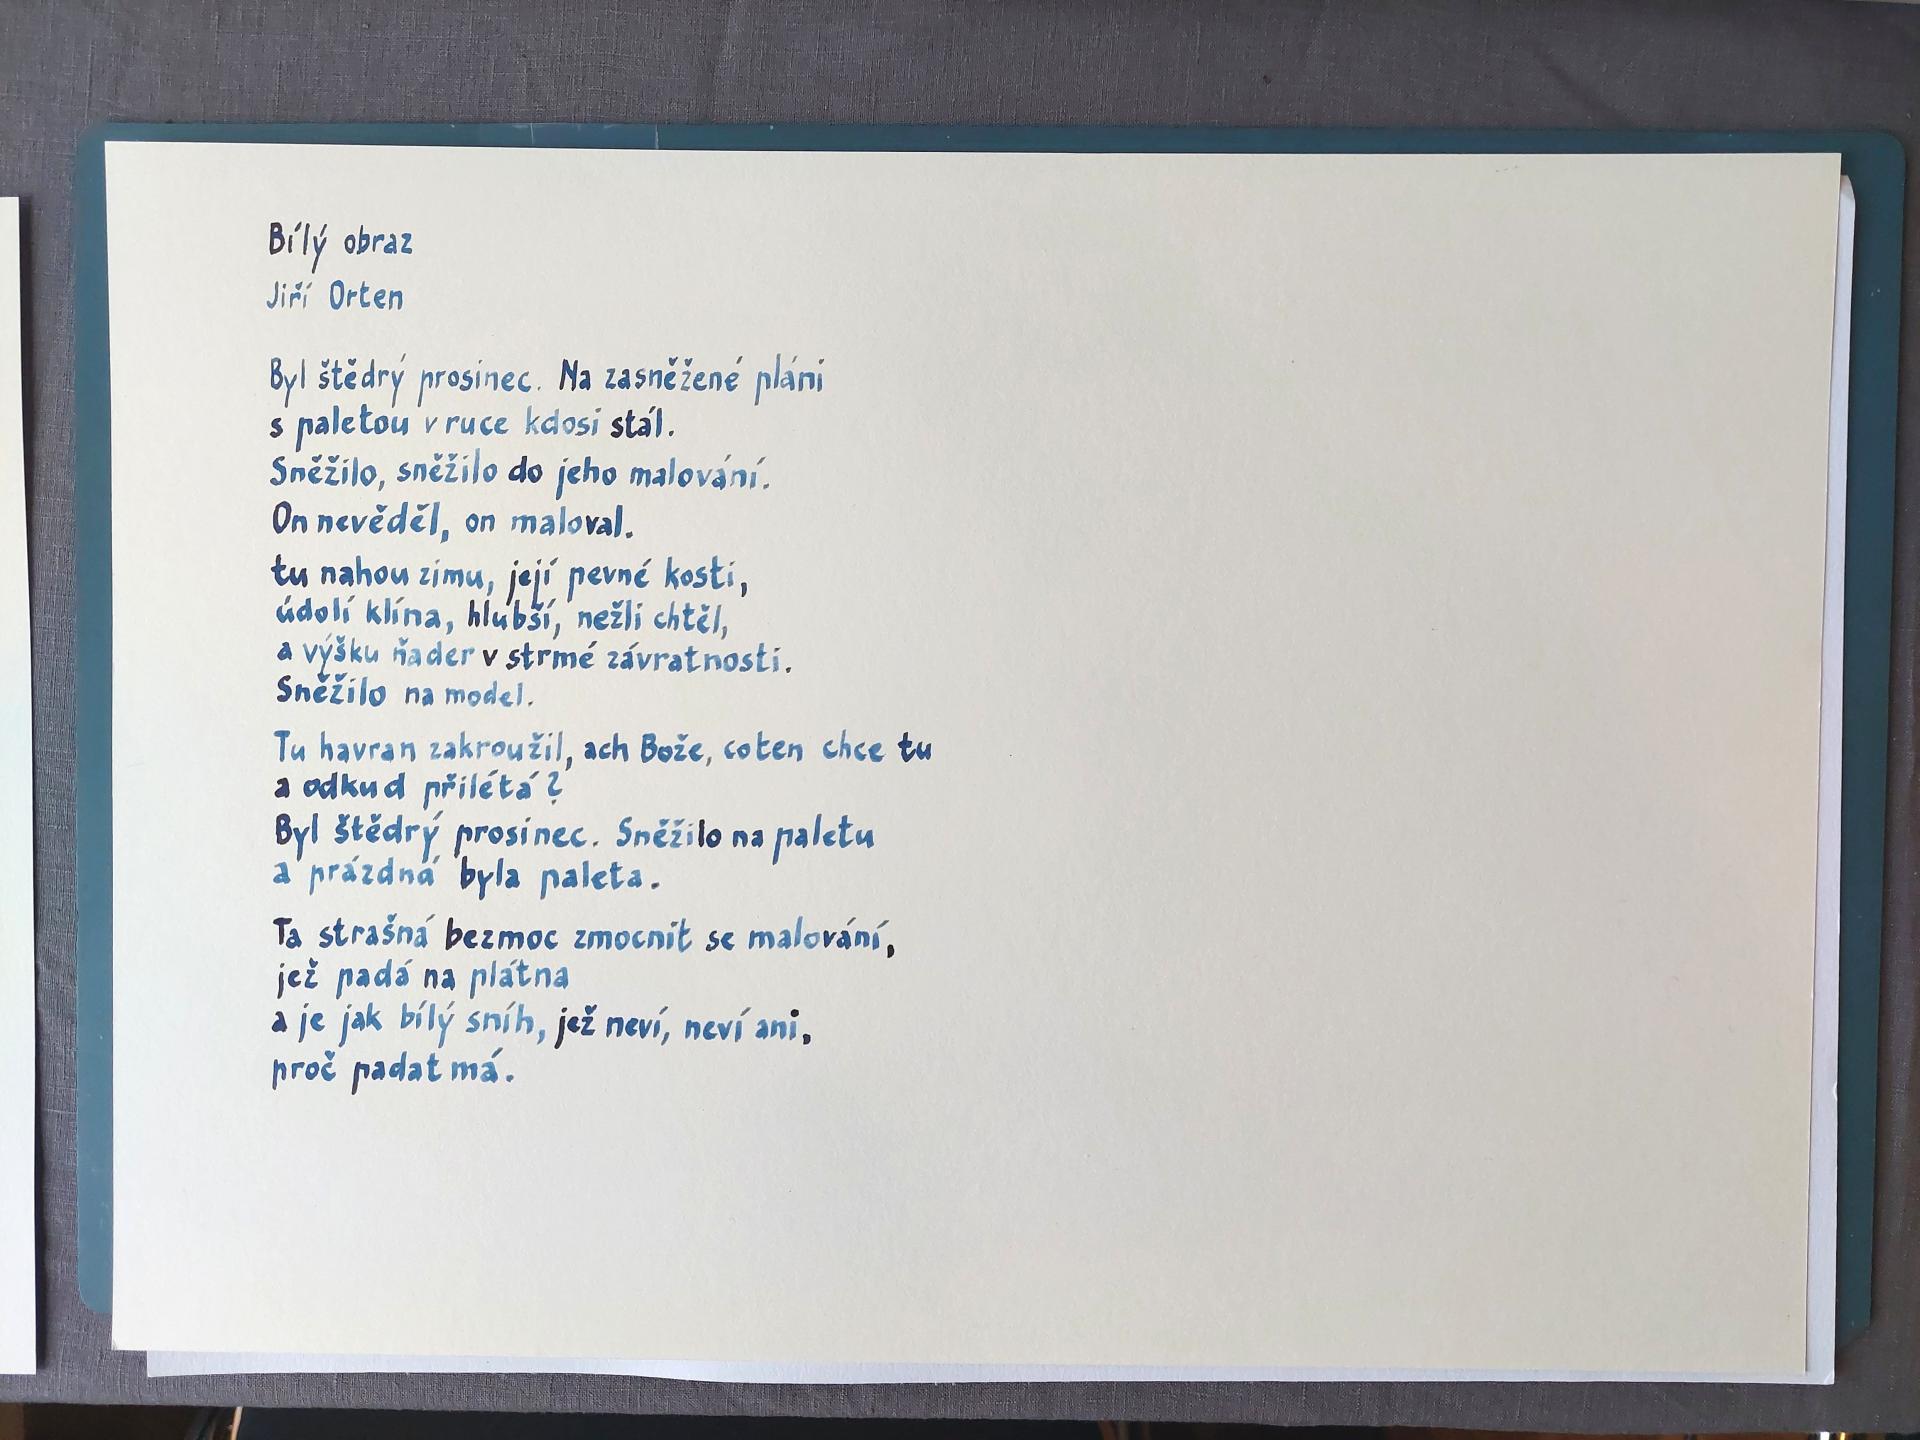 Bílý obraz
Jiří Orten
Byl štědrý prosinec. Na zasněžené pláni
s paletou v ruce kdosi stál.
Sněžilo, sněžilo do jeho malování.
On nevěděl, on maloval.
tu nahou zimu, její pevné kosti,
údolí klína, hlubší, nežli chtěl,
a výšku ňader v strmé závratnosti.
Sněžilo na model.
Tu havran zakroužil, ach Bože, co ten chce tu
a odkud přilétá?
Byl štědrý prosinec. Sněžilo na paletu
a prázdná byla paleta.
Ta strašná bezmoc zmocnit se malování,
jež padá na plátna
a je jak bílý sníh, jež neví, neví ani,
proč padat má.